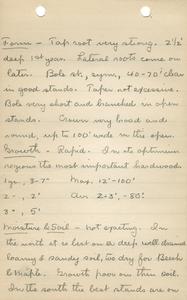 Form - Tap root very strong. 2 1/2'
deep 1st year. Lateral roots come on
later. Bole st., sym, 40-70' clear
in good stands. Taper not excessive.
Bole very short and branched in open
stands. Crown very broad and
round, up to 100' wide in the open.
Growth - Rapid. In its optimum
regions the most important hardwood.
1 yr., 3-7" Max. 12'-100'
2 - , 2' Av. 2-3', -80'
3 - , 5'
Moisture & Soil - not exacting. In
the north it is best on a deep well drained
loamy & sandy soil, too dry for Beech
& Maple. Growth poor on thin soil.
In the south the best stands are on